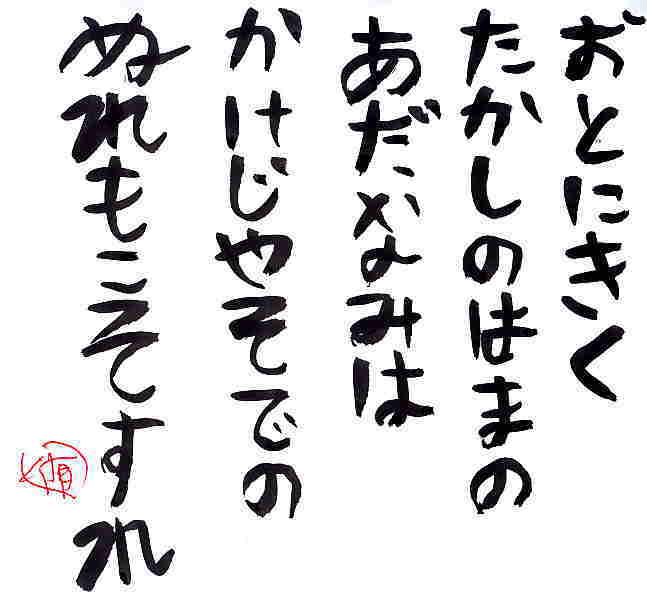 おとにきく
たかしのはまの
あだなみは
かけじやそでの
ぬれもこそすれ